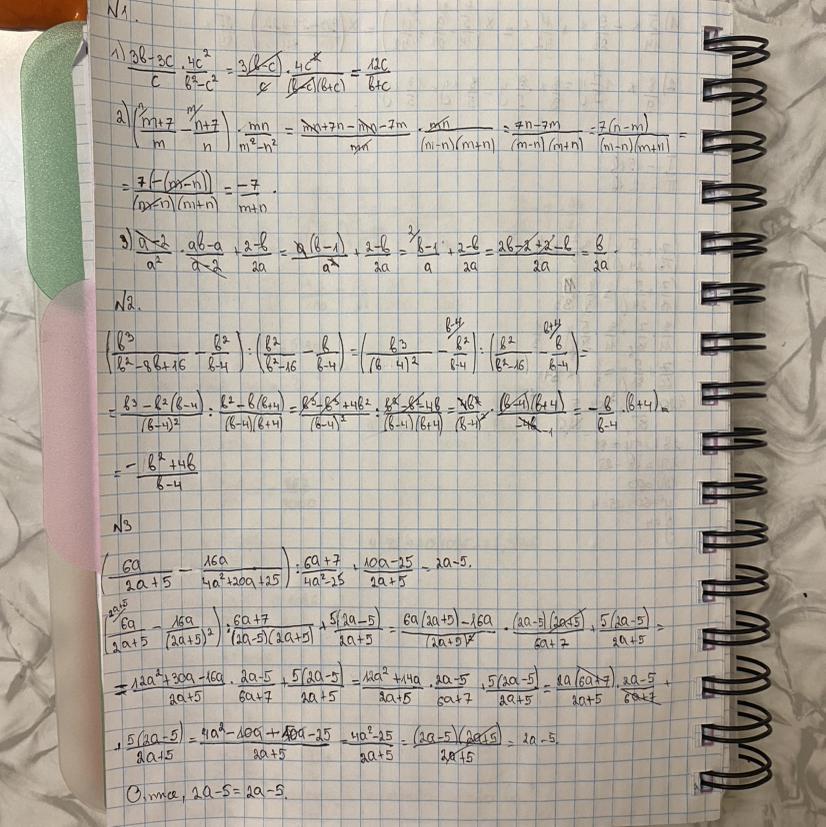 N1.
1) (3в-3с)/с · 4с²/(в²-с²) = 3(в-с)/с · 4с²/((в-с)(в+с)) = 12с/(в+с)
2) ((m+7)/m - (n+7)/n) · mn/(m²-n²) = (mn+7n-mn-7m)/mn · mn/((m-n)(m+n)) = (7n-7m)/((m-n)(m+n)) = 7(n-m)/((m-n)(m+n)) =
= 7(-(m-n))/((m-n)(m+n)) = -7/(m+n).
3) (a-2)/a² · (aв-a)/(a-2) + (2-в)/2a = a(в-1)/a² + (2-в)/2a = (в-1)/a + (2-в)/2a = (2в-2+2-в)/2a = в/2a.
N2.
(в³/(в²-8в+16) - в²/(в-4)) : (в²/(в²-16) - в/(в-4)) = (в³/(в-4)² - в²/(в-4)) : (в²/(в²-16) - в/(в-4)) =
= (в³-в²(в-4))/(в-4)² : (в²-в(в+4))/((в-4)(в+4)) = (в³-в³+4в²)/(в-4)² : (в²-в²-4в)/((в-4)(в+4)) = 4в²/(в-4)² · (в-4)(в+4)/-4в = -в/(в-4) · (в+4) =
= -(в²+4в)/(в-4)
N3
(6a/(2a+5) - 16a/(4a²+20a+25)) : (6a+7)/(4a²-25) + (10a-25)/(2a+5) = 2a-5.
(6a/(2a+5) - 16a/(2a+5)²) : (6a+7)/((2a-5)(2a+5)) + 5(2a-5)/(2a+5) = (6a(2a+5)-16a)/(2a+5)² · (2a-5)(2a+5)/(6a+7) + 5(2a-5)/(2a+5) =
= (12a²+30a-16a)/(2a+5) · (2a-5)/(6a+7) + 5(2a-5)/(2a+5) = (12a²+14a)/(2a+5) · (2a-5)/(6a+7) + 5(2a-5)/(2a+5) = 2a(6a+7)/(2a+5) · (2a-5)/(6a+7) +
+ 5(2a-5)/(2a+5) = (4a²-10a+10a-25)/(2a+5) = (4a²-25)/(2a+5) = (2a-5)(2a+5)/(2a+5) = 2a-5.
Отже, 2a-5 = 2a-5.